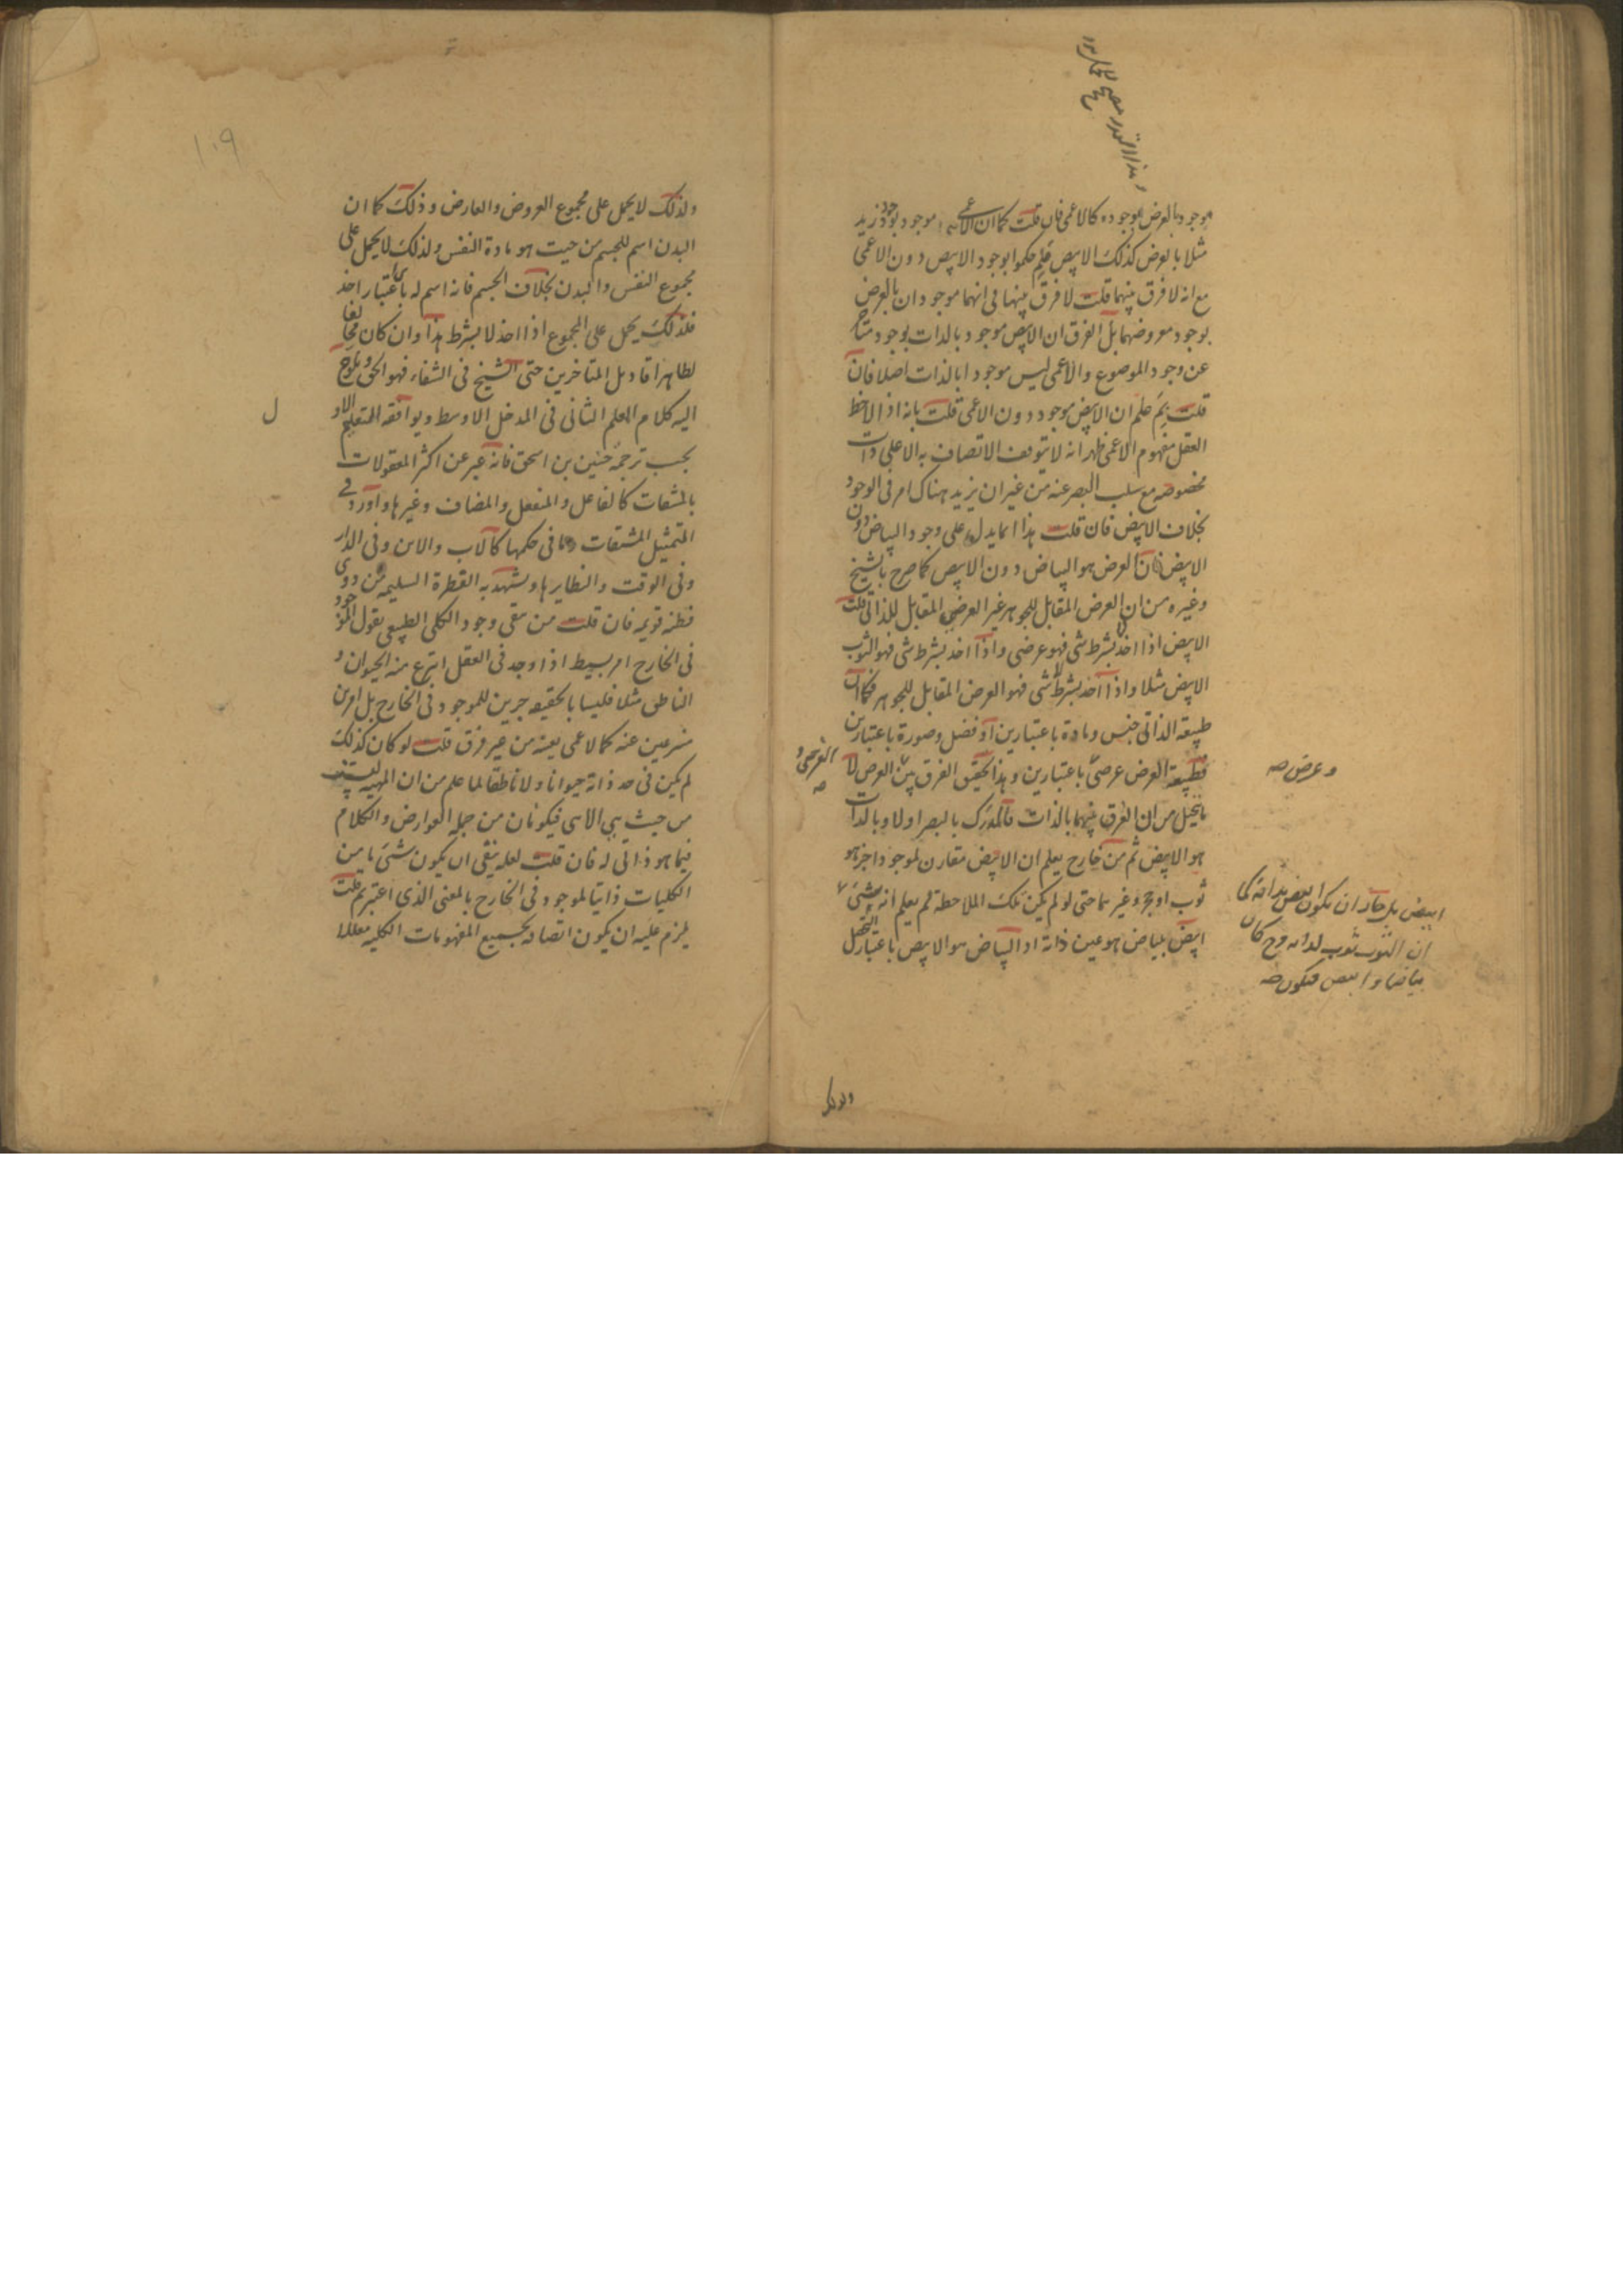 موجود بالعرض بوجوده كالاعمى فان قلت كما ان الاعمى موجود بوجود زيد
مثلا بالعرض كذلك الابيض فلم حكموا بوجود الابيض دون الاعمى
مع انه لا فرق بينهما قلت لا فرق بينهما في انهما موجودان بالعرض
بوجود معروضهما بل الفرق ان الابيض موجود بالذات بوجود متاخر
عن وجود الموضوع والاعمى ليس موجودا بالذات اصلا فان
قلت بم علم ان الابيض موجود دون الاعمى قلت بانه اذا لاحظ
العقل مفهوم الاعمى ظهر انه لا يتوقف الاتصاف به الا على ذات
مخصوصه مع سلب البصر عنه من غير ان يزيد هناك امر في الوجود
بخلاف الابيض فان قلت هذا انما يدل على وجود البياض دون
الابيض فان العرض هو البياض دون الابيض كما صرح به الشيخ
وغيره من ان العرض المقابل للجوهر غير العرضي المقابل للذاتي قلت
الابيض اذا اخذ لا بشرط شى فهو عرضى واذا اخذ بشرط شى فهو الثوب
الابيض مثلا واذا اخذ بشرط لا شى فهو العرض المقابل للجوهر فكما ان
طبيعة الذاتي جنس ومادة باعتبارين او فصل وصورة باعتبارين
فطبيعة العرض عرضى باعتبارين وبهذا تحقيق الفرق بين العرض لا
العرضى و صح
وعرض صح
ما يتخيل من ان الفرق بينهما بالذات فالمدرك بالبصر اولا وبالذات
هو الابيض ثم من خارج يعلم ان الابيض مقارن لموجود اخر هو
ثوب او حجر وغيرهما حتى لو لم يكن تلك الملاحظة لم يعلم انه شئ
ابيض بل جاز ان يكون ابيض بذاته كما
ان الثوب ثوب لذاته وح كان
بياضا وابيض فيكون صح
ابيض ببياض هو عين ذاته اذ البياض هو الابيض باعتبار التحصل
ولذلك
١٠٩
ولذلك لا يحمل على مجموع المعروض والعارض وذلك كما ان
البدن اسم للجسم من حيث هو مادة النفس ولذلك لا يحمل على
مجموع النفس والبدن بخلاف الجسم فانه اسم له باى اعتبار اخذ
فلذلك يحمل على المجموع اذا اخذ لا بشرط هذا وان كان مخالفا
لظاهر اقاويل المتاخرين حتى الشيخ في الشفاء فهو الحق ويلوح
اليه كلام المعلم الثاني في المدخل الاوسط ويوافقه المتعلم الاول
بحسب ترجمة حنين بن اسحق فانه عبر عن اكثر المعقولات
بالمشتقات كالفاعل والمنفعل والمضاف وغيرها واورد في
التمثيل المشتقات وما في حكمها كالاب والابن وفي الدار
وفي الوقت والنظايرها ويشهد به الفطرة السليمة من ذوى
فطنة قويمه فان قلت من نفى وجود الكلي الطبيعي يقول الموجود
في الخارج امر بسيط اذا وجد في العقل انتزع منه الحيوان و
الناطق مثلا فليسا بالحقيقه جزئين للموجود في الخارج بل امرين
منتزعين عنه كالاعمى بعينه من غير فرق قلت لو كان كذلك
لم يكن في حد ذاته حيوانا ولا ناطقا لما علم من ان المهية ليست
من حيث هي الا هي فيكونان من جملة العوارض والكلام
فيما هو ذاتي له فان قلت لعله ينفى ان يكون شئ ما من
الكليات ذاتيا لموجود في الخارج بالمعنى الذي اعتبرتم قلت
يلزم عليه ان يكون اتصافه بجميع المفهومات الكلية معللا